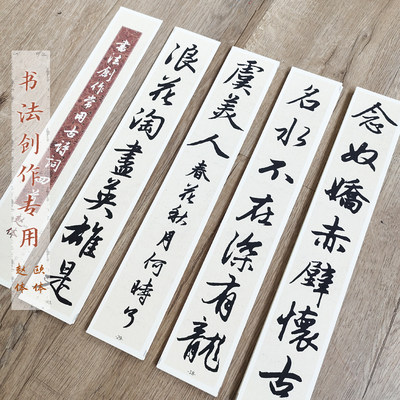 书法创作专用
欧体
赵体
书法创作常用古诗词
浪花淘盡英雄是
虞美人 春花秋月何時了
名水不在深有龍
念奴嬌赤壁懷古